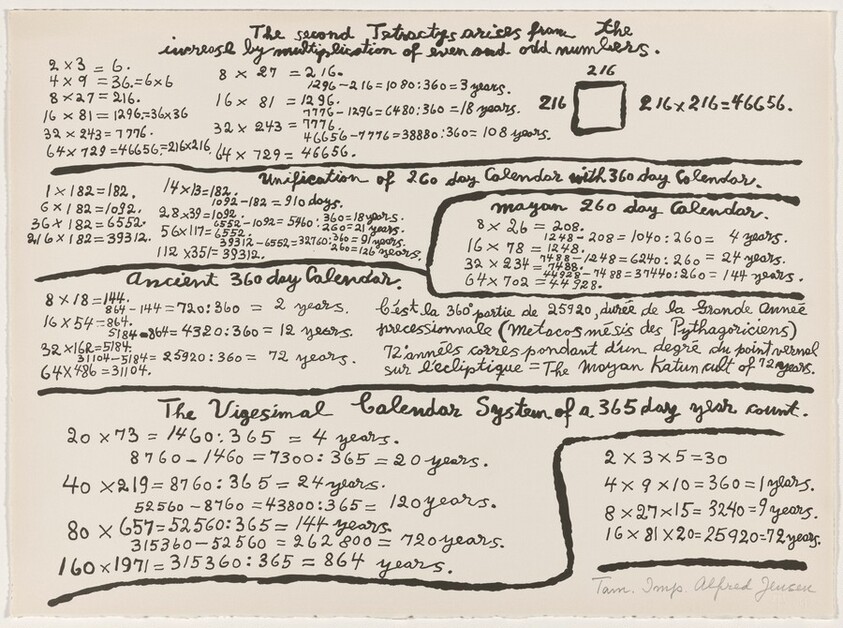 The second Tetractys arises from the
increase by multiplication of even and odd numbers.
2 × 3 = 6.
4 × 9 = 36. = 6×6
8 × 27 = 216.
16 × 81 = 1296. = 36×36
32 × 243 = 7776.
64 × 729 = 46656. = 216×216.
8 × 27 = 216.
1296 – 216 = 1080 : 360 = 3 years.
16 × 81 = 1296.
7776 – 1296 = 6480 : 360 = 18 years.
32 × 243 = 7776.
46656 – 7776 = 38880 : 360 = 108 years.
64 × 729 = 46656.
216
216
216 × 216 = 46656.
Unification of 260 day Calendar with 360 day Calendar.
1 × 182 = 182.
6 × 182 = 1092.
36 × 182 = 6552.
216 × 182 = 39312.
14 × 13 = 182.
1092 – 182 = 910 days.
28 × 39 = 1092.
6552 – 1092 = 5460 : 360 = 18 years.
260 = 21 years.
56 × 117 = 6552.
39312 – 6552 = 32760 : 360 = 91 years.
260 = 126 years.
112 × 351 = 39312.
Mayan 260 day Calendar.
8 × 26 = 208.
1248 – 208 = 1040 : 260 = 4 years.
16 × 78 = 1248.
7488 – 1248 = 6240 : 260 = 24 years.
32 × 234 = 7488.
44928 – 7488 = 37440 : 260 = 144 years.
64 × 702 = 44928.
Ancient 360 day Calendar.
8 × 18 = 144.
864 – 144 = 720 : 360 = 2 years.
16 × 54 = 864.
5184 – 864 = 4320 : 360 = 12 years.
32 × 162 = 5184.
31104 – 5184 = 25920 : 360 = 72 years.
64 × 486 = 31104.
C'est la 360e partie de 25920, durée de la Grande Année
précessionnale (Metacosmésis des Pythagoriciens)
72 années correspondant d'un degré du point vernal
sur l'écliptique = The Mayan Katun cult of 72 years.
The Vigesimal Calendar System of a 365 day year count.
20 × 73 = 1460 : 365 = 4 years.
8760 – 1460 = 7300 : 365 = 20 years.
40 × 219 = 8760 : 365 = 24 years.
52560 – 8760 = 43800 : 365 = 120 years.
80 × 657 = 52560 : 365 = 144 years.
315360 – 52560 = 262800 = 720 years.
160 × 1971 = 315360 : 365 = 864 years.
2 × 3 × 5 = 30
4 × 9 × 10 = 360 = 1 years.
8 × 27 × 15 = 3240 = 9 years.
16 × 81 × 20 = 25920 = 72 years.
Tam. Imp. Alfred Jensen